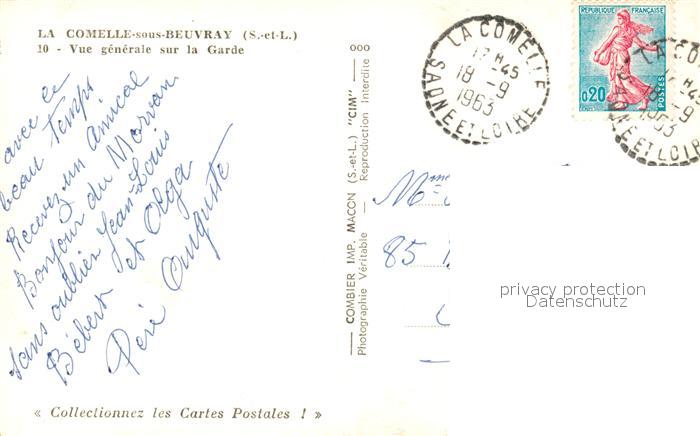 LA COMELLE-sous-BEUVRAY (S.-et-L.)
10 - Vue générale sur la Garde
avec ce
beau temps
Recevez un amical
Bonjour du Morvan
sans oublier Jean-Louis
Bébert et Olga
Père Auguste
« Collectionnez les Cartes Postales ! »
COMBIER IMP. MACON (S.-et-L.) "CIM"
Photographie Véritable - Reproduction Interdite
REPUBLIQUE FRANÇAISE
0,20
POSTES
LA COMELLE
17H-45
18 -9
1963
SAONE ET LOIRE
LA CO
H-45
18 -9
1963
SAONE ET LOIRE
Mme
85
privacy protection
Datenschutz